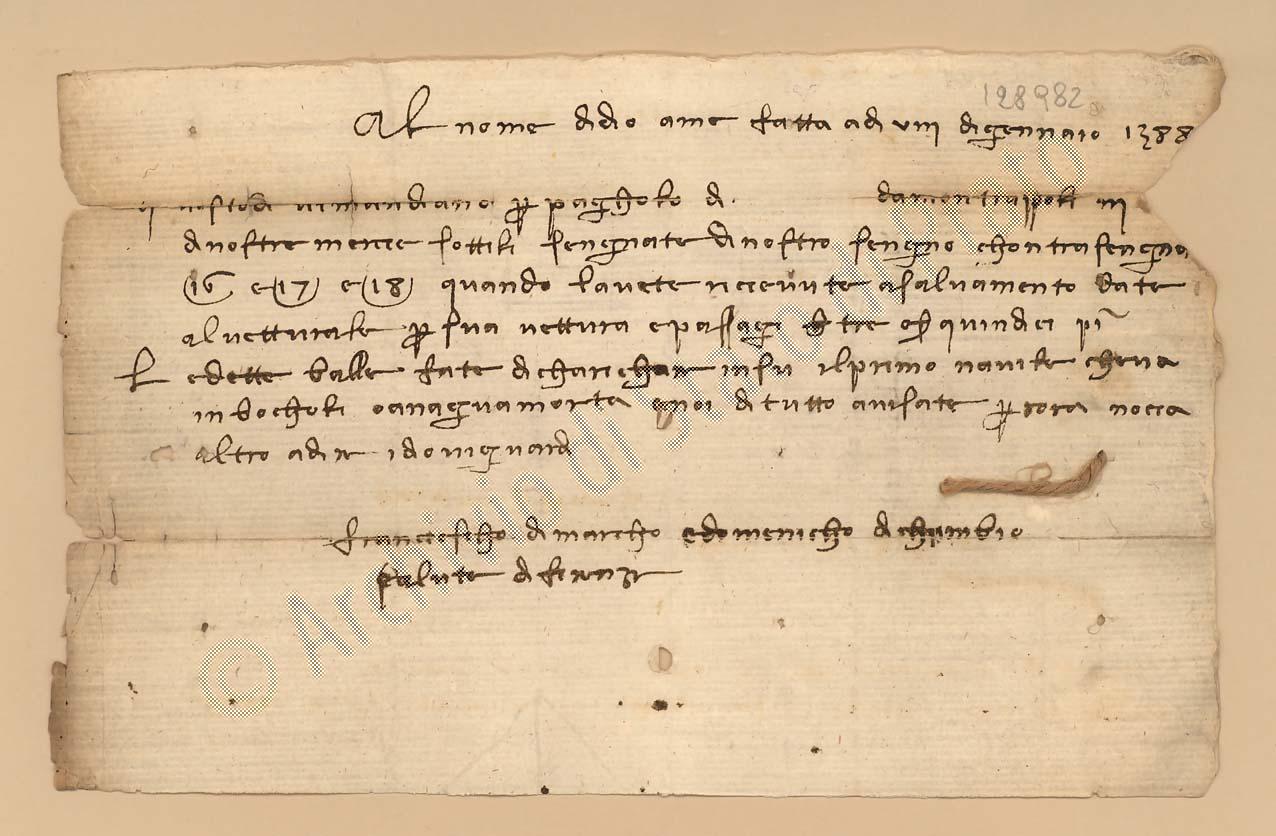 128982
Al nome di dio ame fatta adi viii di gennaio 1388
questo di vi mandiano per pagholo di da montraipoli iii
di nostre merce sottili sengnate di nostro sengno chontrasengna
16 e 17 e 18 quando l avete ricevute a salvamento date
al vetturale per sua vettura e passagi tre e quindici pi
e dette balle fate di charichar in su il primo navile che va
in bocholi o an aguamorta e noi di tutto avisate per ora nocia
altro a dir idio vi guardi
francischo di marcho e domenicho di chambio
salute di firenze
© Archivio di Stato di Prato